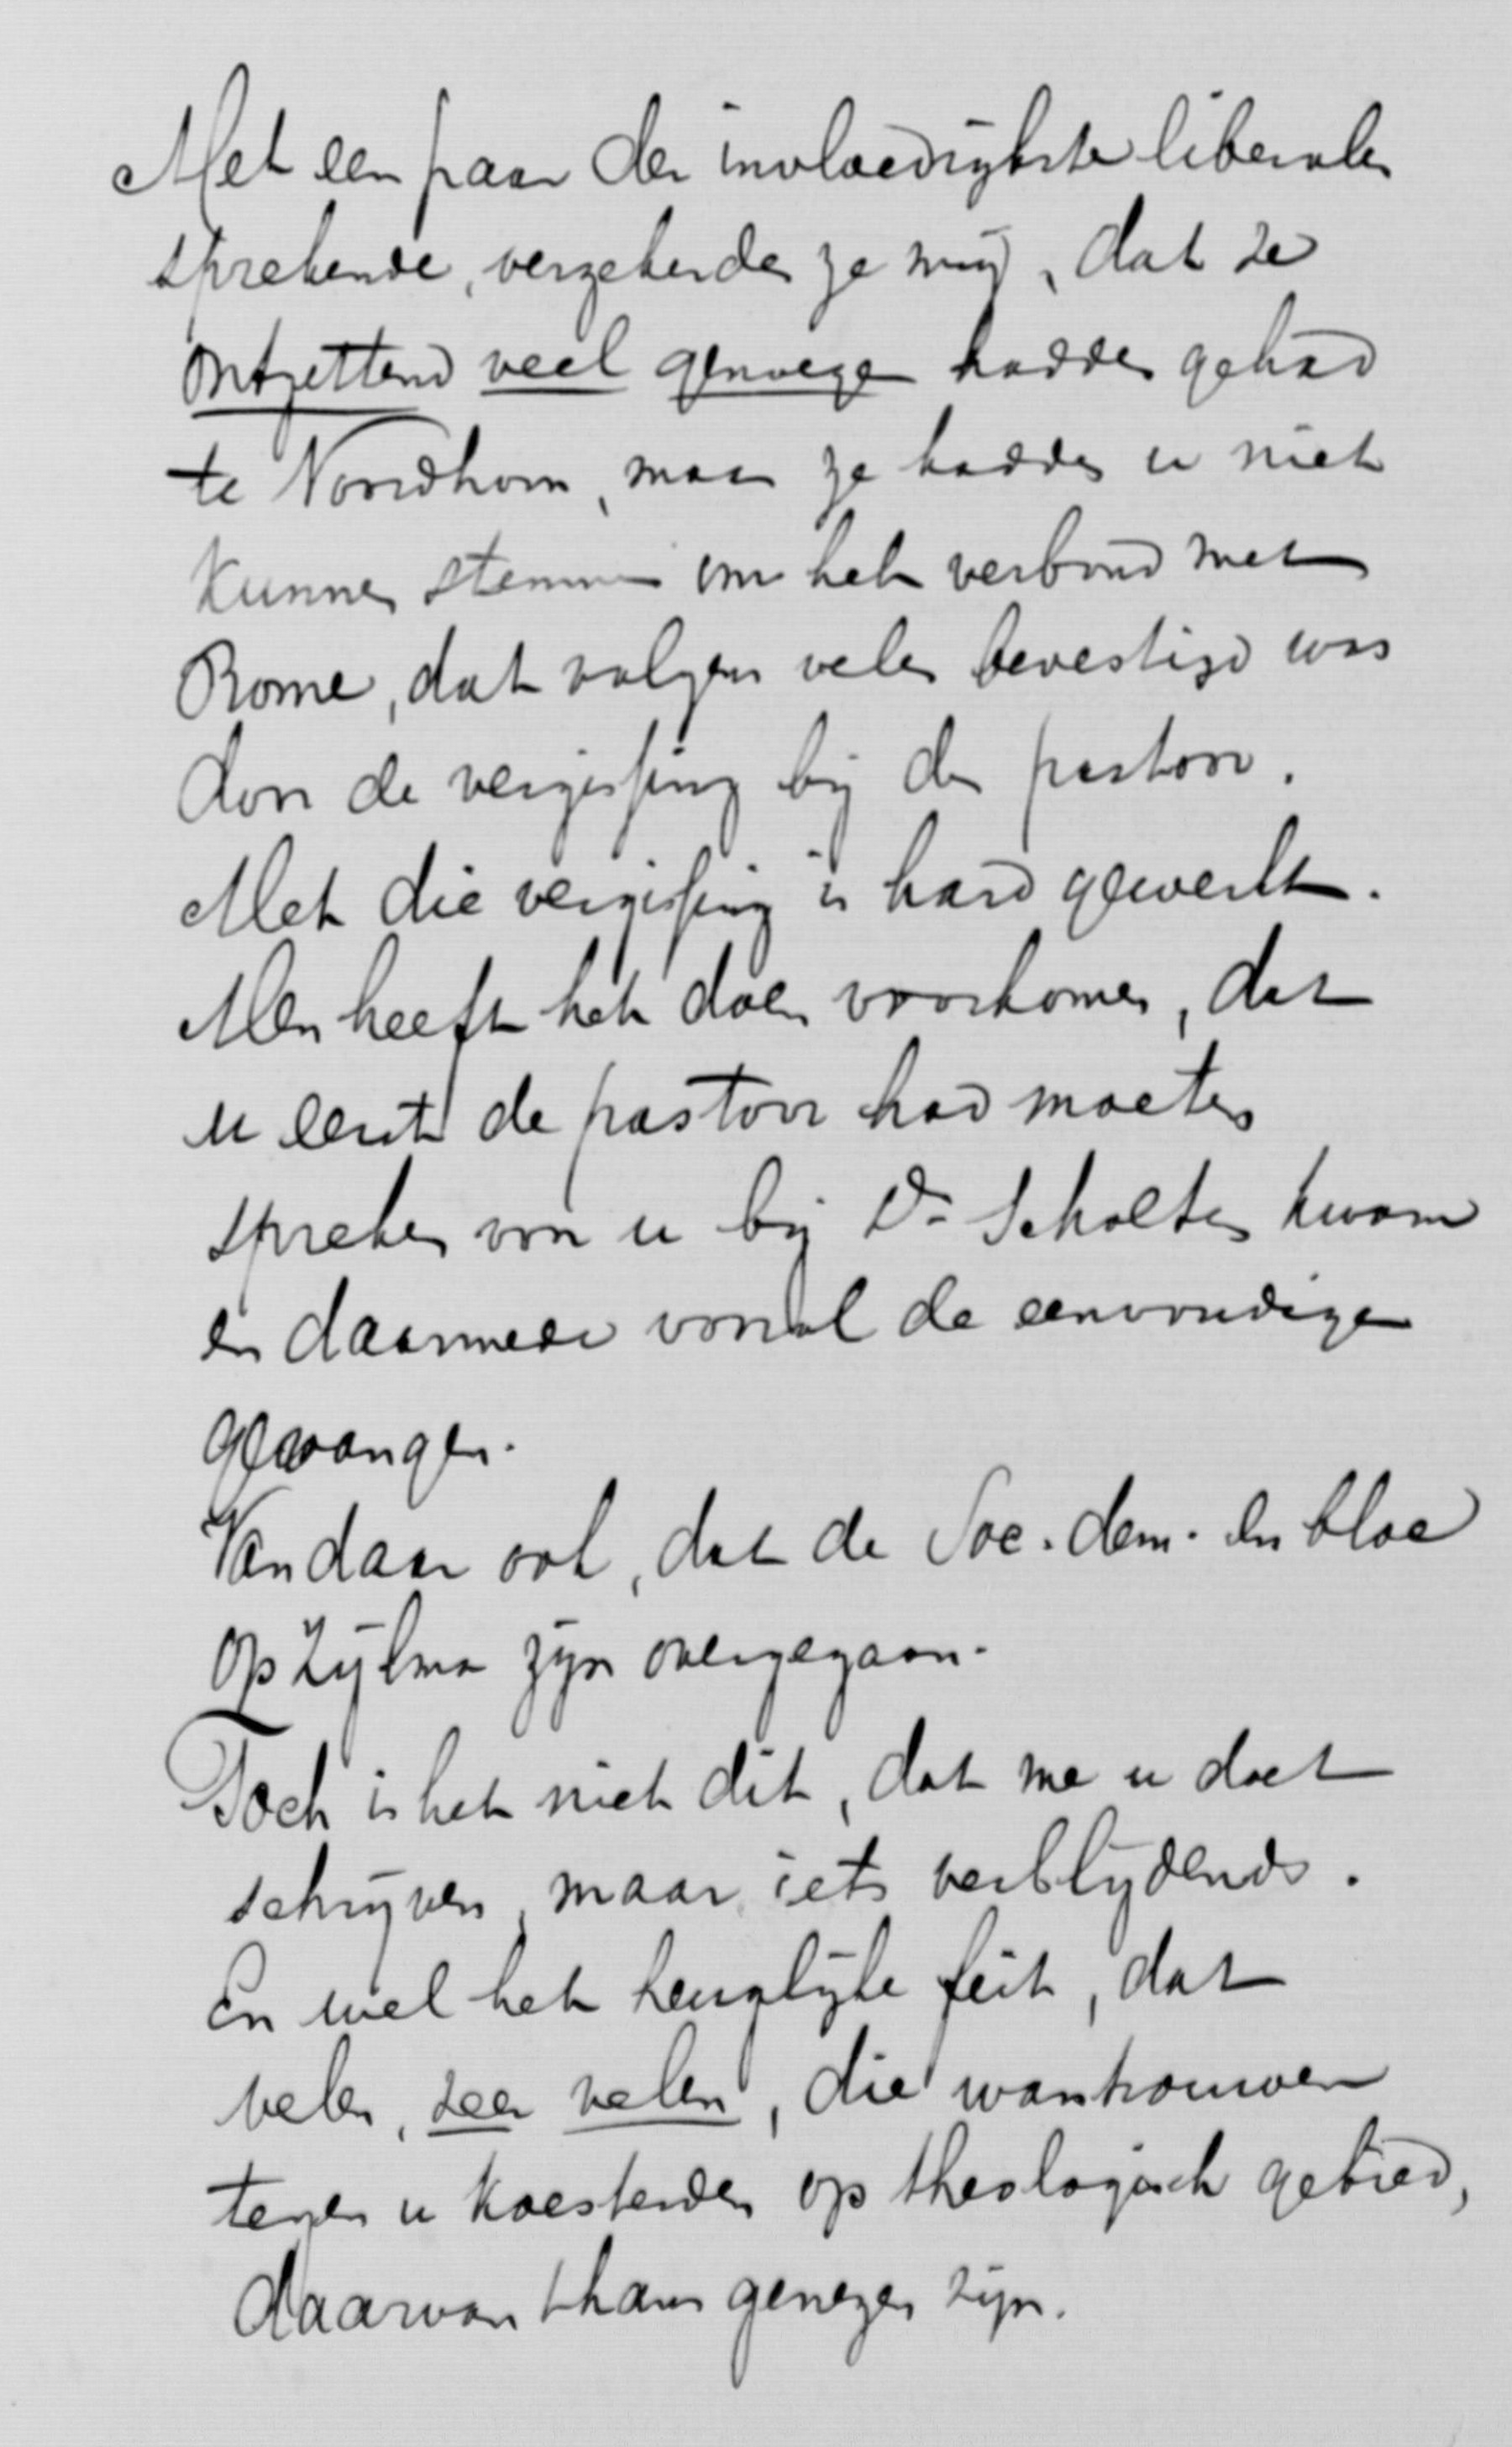 Met een paar der invloedrijkste liberalen
sprekende, verzekerden ze mij, dat ze
ontzettend veel genoegen hadden gehad
te Noordhorn, maar ze hadden u niet
kunnen stemmen om het verbond met
Rome, dat volgens velen bevestigd was
door de vergissing bij den pastoor.
Met die vergissing is hard gewerkt.
Men heeft het doen voorkomen, dat
u eerst de pastoor had moeten
spreken voor u bij Ds Scholten kwam
en daarmede vooral de eenvoudigen
gevangen.
Vandaar ook, dat de Soc. dem. en bloc
op Zijlma zijn overgegaan.
Toch is het niet dit, dat me u doet
schrijven, maar iets verblijdends.
En wel het heuglijke feit, dat
velen, zeer velen, die wantrouwen
tegen u koesterden op theologisch gebied,
daarvan thans genezen zijn.